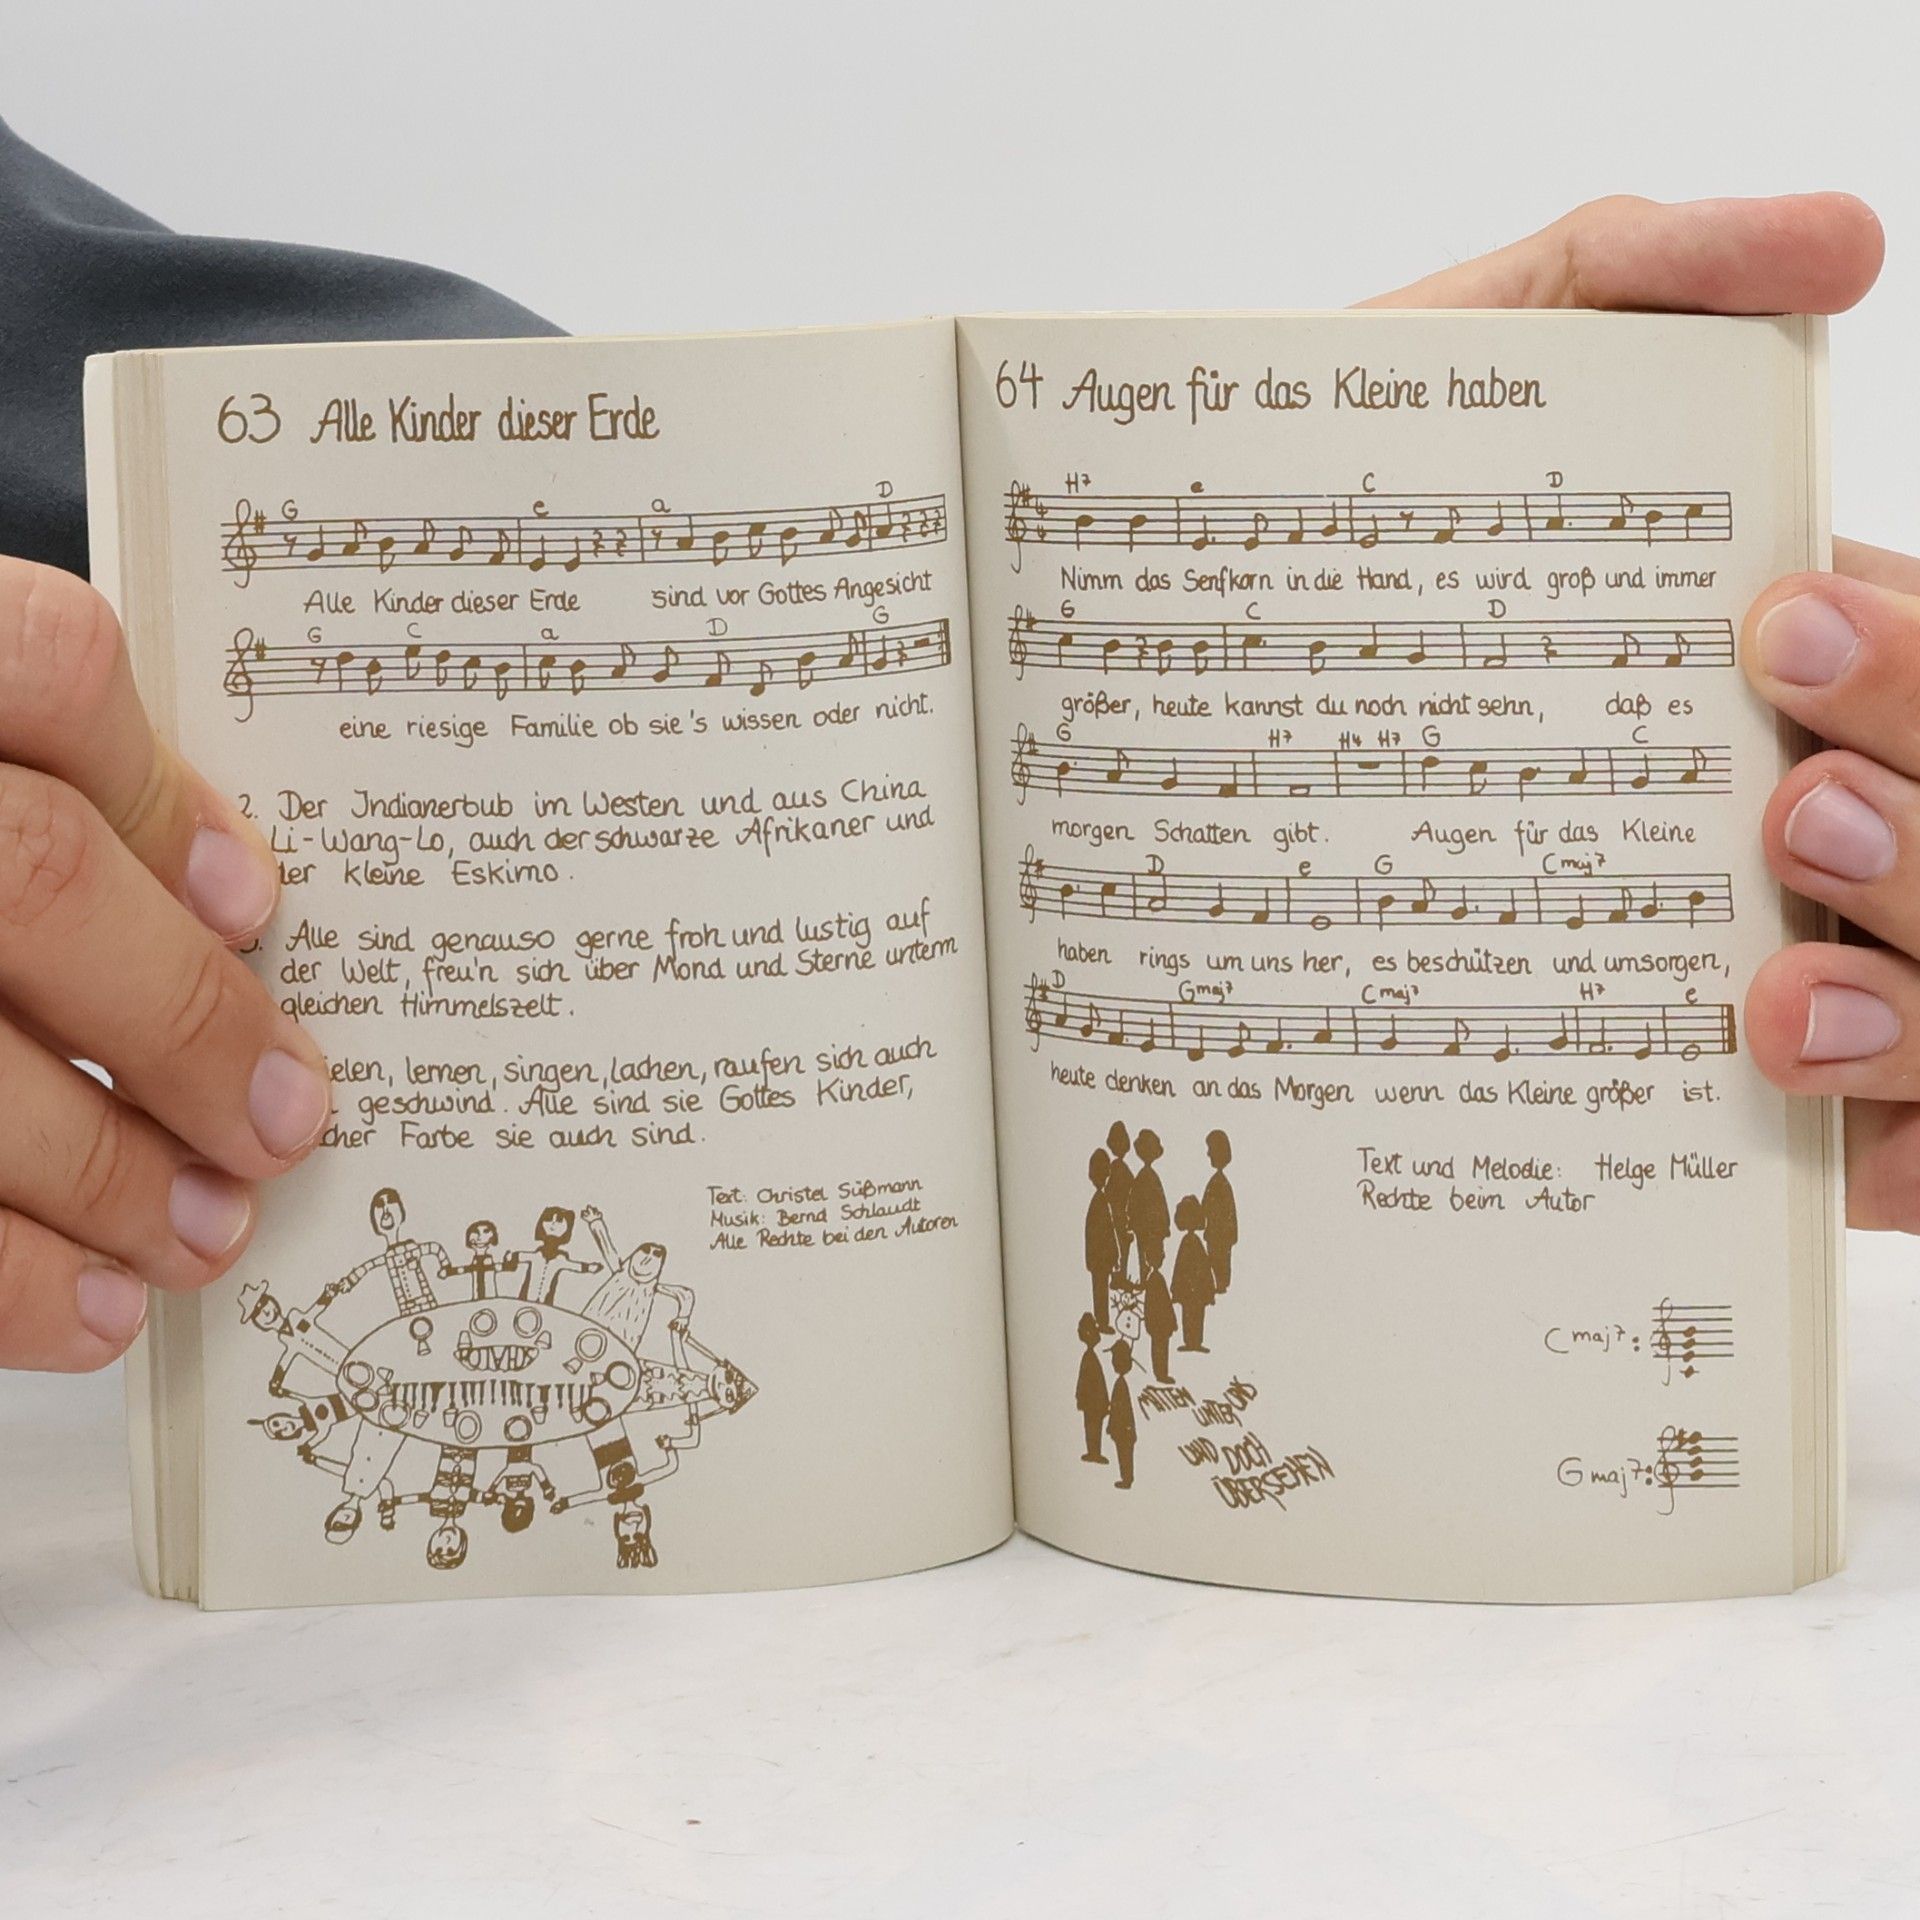 63 Alle Kinder dieser Erde
G e a D
Alle Kinder dieser Erde sind vor Gottes Angesicht
G C a D G
eine riesige Familie ob sie's wissen oder nicht.
2. Der Indianerbub im Westen und aus China
Li-Wang-Lo, auch der schwarze Afrikaner und
der kleine Eskimo.
3. Alle sind genauso gerne froh und lustig auf
der Welt, freu'n sich über Mond und Sterne unterm
gleichen Himmelszelt.
ielen, lernen, singen, lachen, raufen sich auch
geschwind. Alle sind sie Gottes Kinder,
cher Farbe sie auch sind.
Text: Christel Süßmann
Musik: Bernd Schlaudt
Alle Rechte bei den Autoren
64 Augen für das Kleine haben
H7 e C D
4
4
Nimm das Senfkorn in die Hand, es wird groß und immer
G C D
größer, heute kannst du noch nicht sehn, daß es
G H7 H4 H7 G C
morgen Schatten gibt. Augen für das Kleine
D e G Cmaj7
haben rings um uns her, es beschützen und umsorgen,
D Gmaj7 Cmaj7 H7 e
heute denken an das Morgen wenn das Kleine größer ist.
Text und Melodie: Helge Müller
Rechte beim Autor
MITTEN
UNTER UNS
UND DOCH
ÜBERSEHEN
Cmaj7:
Gmaj7: